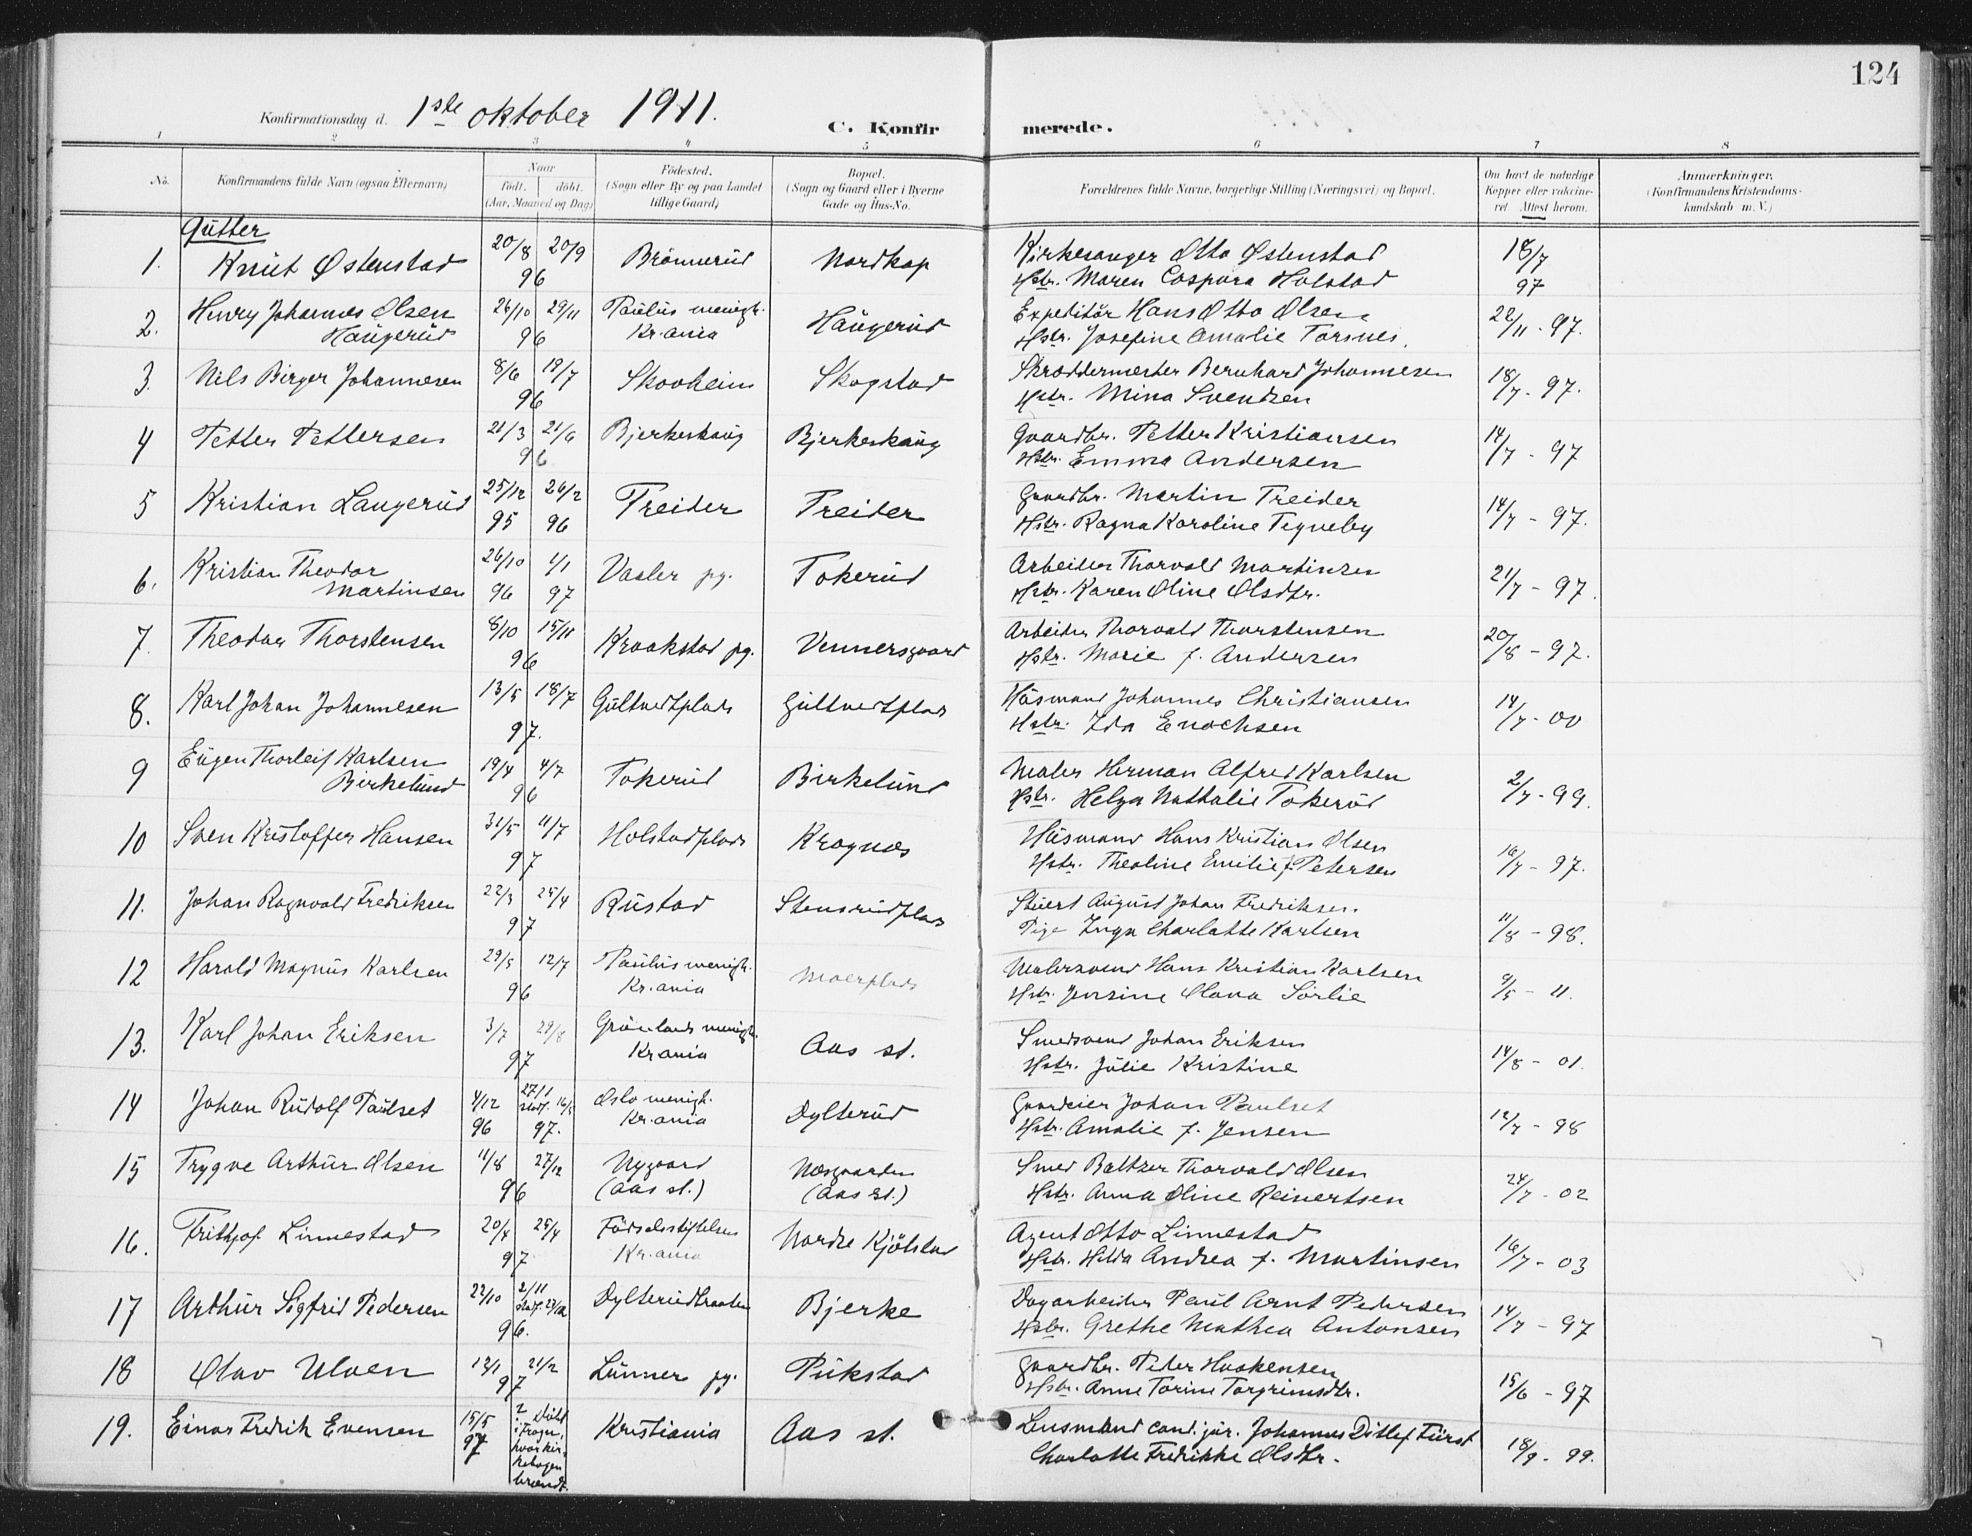 124
Konfirmationsdag d. 1ste oktober 1911.
C. Konfirmerede.
1 2 3 4 5 6 7 8
No. Konfirmandens fulde Navn (ogsaa Efternavn) Naar født. døbt. (Aar, Maaned og Dag) Fødested. (Sogn eller By og paa Landet tillige Gaard) Bopæl. (Sogn og Gaard eller i Byerne Gade og Hus-No. Forældrenes fulde Navne, borgerlige Stilling (Næringsvei) og Bopæl. Om havt de naturlige Kopper eller vaccineret. Attest herom. Anmærkninger. (Konfirmandens Kristendomskundskab m. V.)
Gutter
1. Knut Østenstad 20/8 20/9 96 Brønnerud Nordkap Kirkesanger Otto Østenstad 18/7 97
Hstr. Maren Caspara Holstad
2. Henry Johannes Olsen 26/10 29/11 96 Paulus menigh. Haugerud Expeditør Hans Otto Olsen 22/11 - 97.
Haugerud Kr.ania Hstr. Josefine Amalie Torsnes.
3. Nils Birger Johannesen 8/6 19/7 96 Skovheim Skogstad Skræddermester Bernhard Johannesen 18/7 - 97.
Hstr. Mina Svendsen
4 Petter Pettersen 21/3 21/6 96 Bjerkeskaug Bjerkeskaug Gaardbr. Petter Kristiansen 14/7 - 97
Hstr. Emma Andersen
5 Kristian Laugerud 25/12 95 26/2 96 Treider Treider Gaardbr. Martin Treider 14/7 - 97.
Hstr. Ragna Karoline Tegneby
6. Kristian Theodor 26/10 96 1/1 97 Vaaler pg. Tokerud Arbeider Thorvald Martinsen 21/7 - 97.
Martinsen Hstr. Karen Oline Olsdtr.
7. Theodor Thorstensen 8/10 15/11 96 Kraakstad pg. Vennersgaard Arbeider Thorvald Thorstensen 20/8 - 97.
Hstr. Marie f. Andersen
8. Karl Johan Johannesen 13/5 18/7 97. Gultvedtplads Gultvedtplads Husmand Johannes Christiansen 14/7 - 00
Hstr. Ida Enochsen
9 Eugen Thorleif Karlsen 19/4 4/7 96 Tokerud Birkelund Maler Herman Alfred Karlsen 2/7 - 99.
Birkelund Hstr. Helga Nathalie Tokerud
10 Sven Kristoffer Hansen 31/5 11/7 97 Holstadplads Kragnæs Husmand Hans Kristian Olsen 16/7 - 97.
Hstr. Theoline Emilie f. Petersen
11. Johan Ragnvald Fredriksen 22/3 25/4 97 Rustad Stensrudplas August Johan Fredriksen. 11/8 - 98.
Pige Inga Charlotte Karlsen
12 Harald Magnus Karlsen 29/5 12/7 96 Paulus menigh. Moerplads Malersvend Hans Kristian Karlsen 9/5 - 11.
Kr.ania Hstr. Jensine Olava Sørlie
13. Karl Johan Eriksen 3/7 29/8 97 Grønlands menigh. Aas st. Smedsvend Johan Eriksen 14/8 - 01.
Kr.ania Hstr. Julie Kristine
14 Johan Rudolf Paulset 4/12 96 27/11 stadf. 16/5 97. Oslo menigh. Dylterud Gaardeier Johan Paulset 12/7 - 98
Kr.ania Hstr. Amalie f. Jensen
15 Trygve Arthur Olsen 11/8 27/12 96 Nygaard Næsgaarden Smed Baltzer Thorvald Olsen 24/7 - 02
(Aas st.) (Aas st.) Hstr. Anna Oline Reinertsen
16. Frithjof Linnestad 20/4 25/4 97 Fødselsstiftelsen Nordre Kjølstad Agent Otto Linnestad 16/7 - 03
Kr.ania Hstr. Hilda Andrea f. Martinsen
17 Arthur Sigfrid Pedersen 22/10 2/11 stadf. 27/12 96. Dylterudbraaten Bjerke Dagarbeider Paul Arnt Pedersen 14/7 - 97
Hstr. Grethe Mathea Antonsen
18 Olav Ulven 12/1 21/2 97 Lunner pg. Pukstad Gaardbr. Peder Haakensen 15/6 - 97
Hstr. Anne Torine Torgrimsdtr.
19. Einar Fredrik Evensen 15/5 97 ? Døbt i Frogn, hvor kirkebogen brændt. Kristiania Aas st. Lensmand cand. jur. Johannes Ditlef Fürst 18/9 - 99.
Charlotte Fredrikke Olsdtr.